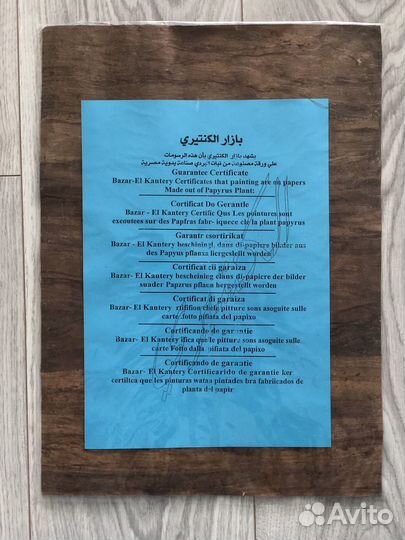 بازار الكنتيري
يشهد بازار الكنتيري بأن هذه الرسومات
على ورقة مصنوعة من نبات البردي صناعة يدوية مصرية
Guarantee Certificate
Bazar-El Kantery Certificates that painting are on papers
Made out of Papyrus Plant:
Certificat Do Gerantle
Bazar - El Kantery Certific Qus Les pointures sont
excoutees sur des Papfras fabr- iquece cle la plant papyrus
Garantr csortirikat
Bazar - El Kantery bescheiningl, dans di-papicre bilder aus
des Papyus pflauxa liergestellt worden
Certifikat cii garaiza
Bazar- El Kantery bescheining clans di-papicre der bilder
suader Papzrus pflaun hergestellt worden
Certifikat di garaiza
Bazar- El Kantery rtifition chele pitture sons asoguite sulle
carte .fotto pifiata del papixo
Certificando de garantie
Bazar- El Kantery ifica que le pitture sons asoguite sulle
carte Fotto dalla pifiata del papixo
Certificando de garaatie
Bazar- El Kantery Cortificarido de garantie ker
certiltca que les pinturas wataa pintades bra fabriicados de
planta del papir
Avito